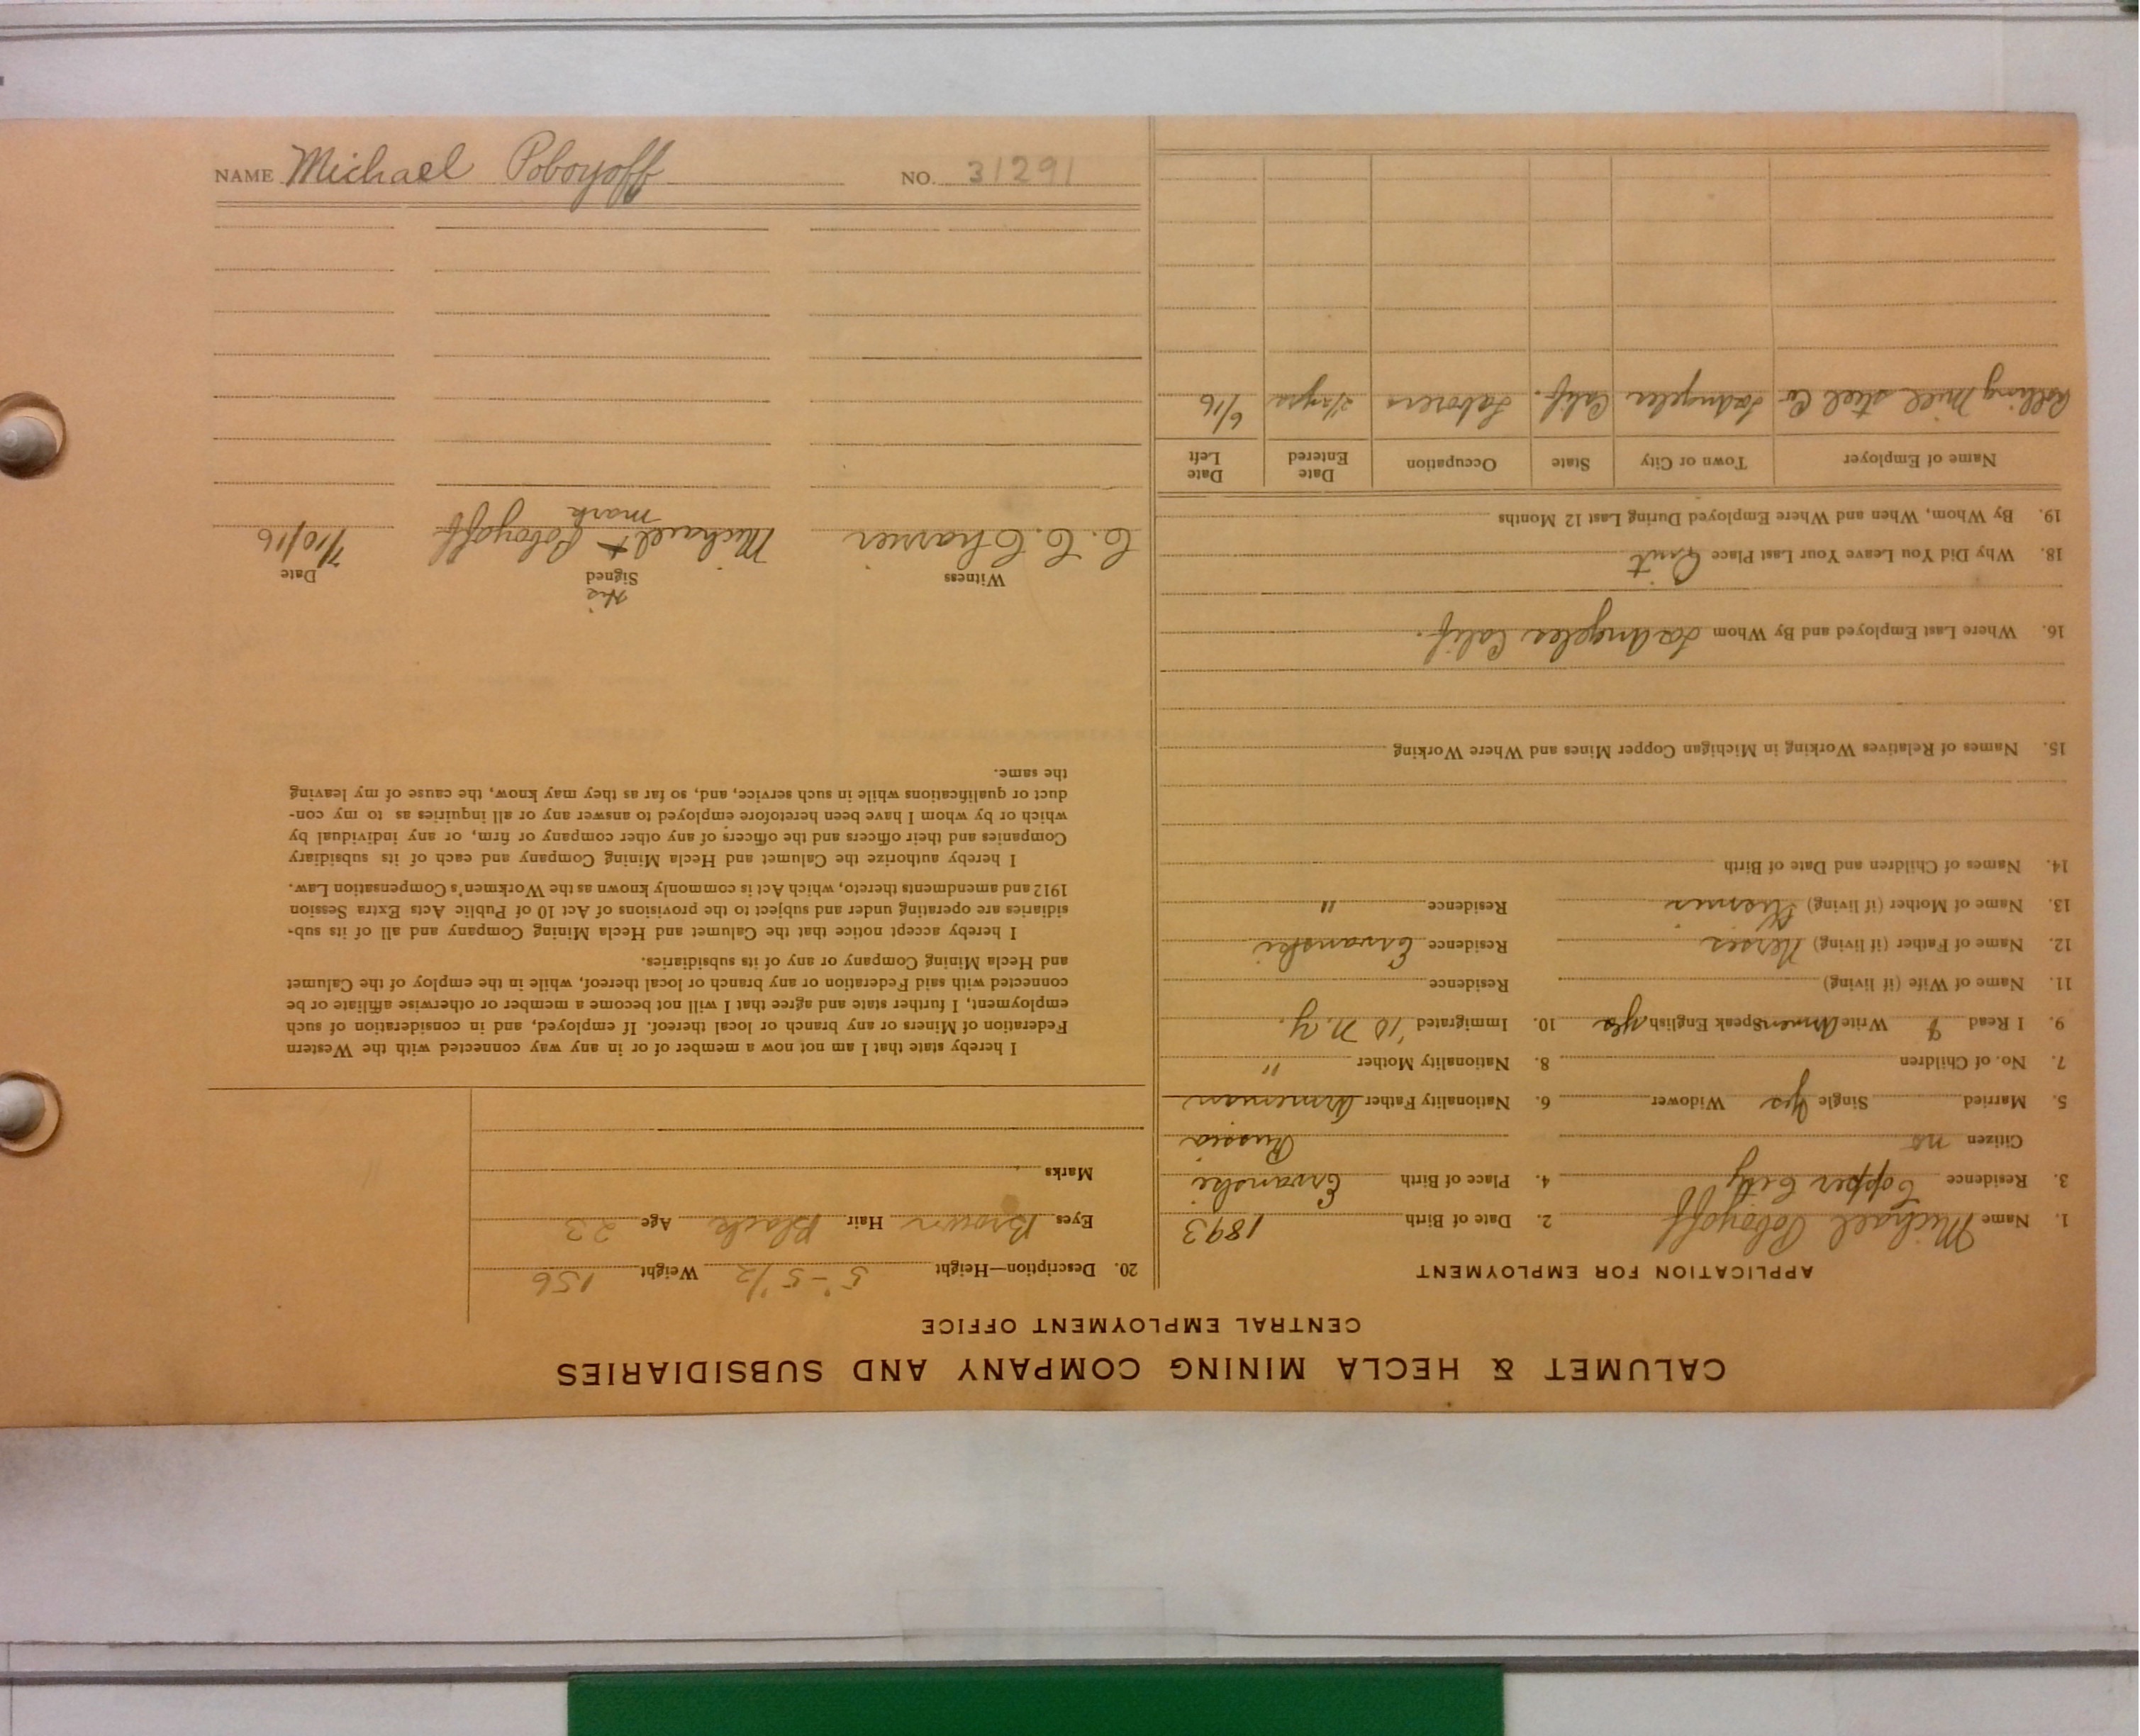 NAME Michael Poboyoff NO. 31291
CALUMET & HECLA MINING COMPANY AND SUBSIDIARIES
CENTRAL EMPLOYMENT OFFICE
APPLICATION FOR EMPLOYMENT
1. Name Michael Poboyoff 2. Date of Birth 1893
3. Residence Copper City 4. Place of Birth Ervanski
Citizen no Russia
5. Married Single yes Widower 6. Nationality Father Armenian
7. No. of Children 8. Nationality Mother "
9. I Read & Write Armen Speak English yes 10. Immigrated '10 N.Y.
11. Name of Wife (if living) Residence
12. Name of Father (if living) Nerses Residence Ervanski
13. Name of Mother (if living) Residence "
14. Names of Children and Date of Birth
15. Names of Relatives Working in Michigan Copper Mines and Where Working
16. Where Last Employed and By Whom Los Angeles Calif.
18. Why Did You Leave Your Last Place Quit
19. By Whom, When and Where Employed During Last 12 Months
Name of Employer Town or City State Occupation Date Entered Date Left
Rolling Mill Steel Co Los Angeles Calif. Laborer 6/16
20. Description—Height 5'-5 1/2" Weight 156
Eyes Brown Hair Black Age 23
Marks
I hereby state that I am not now a member of or in any way connected with the Western
Federation of Miners or any branch or local thereof. If employed, and in consideration of such
employment, I further state and agree that I will not become a member or otherwise affiliate or be
connected with said Federation or any branch or local thereof, while in the employ of the Calumet
and Hecla Mining Company or any of its subsidiaries.
I hereby accept notice that the Calumet and Hecla Mining Company and all of its sub-
sidiaries are operating under and subject to the provisions of Act 10 of Public Acts Extra Session
1912 and amendments thereto, which Act is commonly known as the Workmen's Compensation Law.
I hereby authorize the Calumet and Hecla Mining Company and each of its subsidiary
Companies and their officers and the officers of any other company or firm, or any individual by
which or by whom I have been heretofore employed to answer any or all inquiries as to my con-
duct or qualifications while in such service, and, so far as they may know, the cause of my leaving
the same.
His
Witness Signed Date
C. C. Charrier Michael + Poboyoff 7/10/16
mark